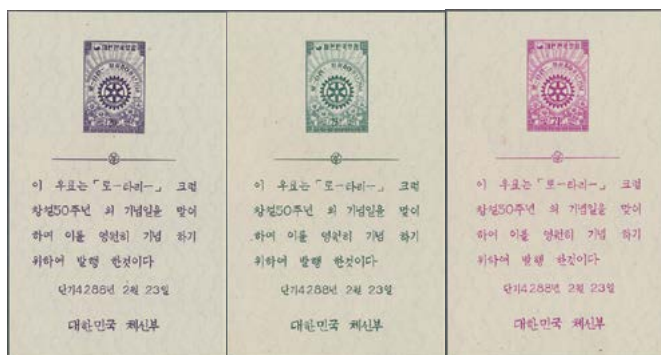 대한민국우표
이 우표는 「로-타리-」 크럽
창설50주년 의 기념일을 맞이
하여 이를 영원히 기념 하기
위하여 발행 한것이다
단기4288년 2월 23일
대한민국 체신부
대한민국우표
이 우표는 「로-타리-」 크럽
창설50주년 의 기념일을 맞이
하여 이를 영원히 기념 하기
위하여 발행 한것이다
단기4288년 2월 23일
대한민국 체신부
대한민국우표
이 우표는 「로-타리-」 크럽
창설50주년 의 기념일을 맞이
하여 이를 영원히 기념 하기
위하여 발행 한것이다
단기4288년 2월 23일
대한민국 체신부